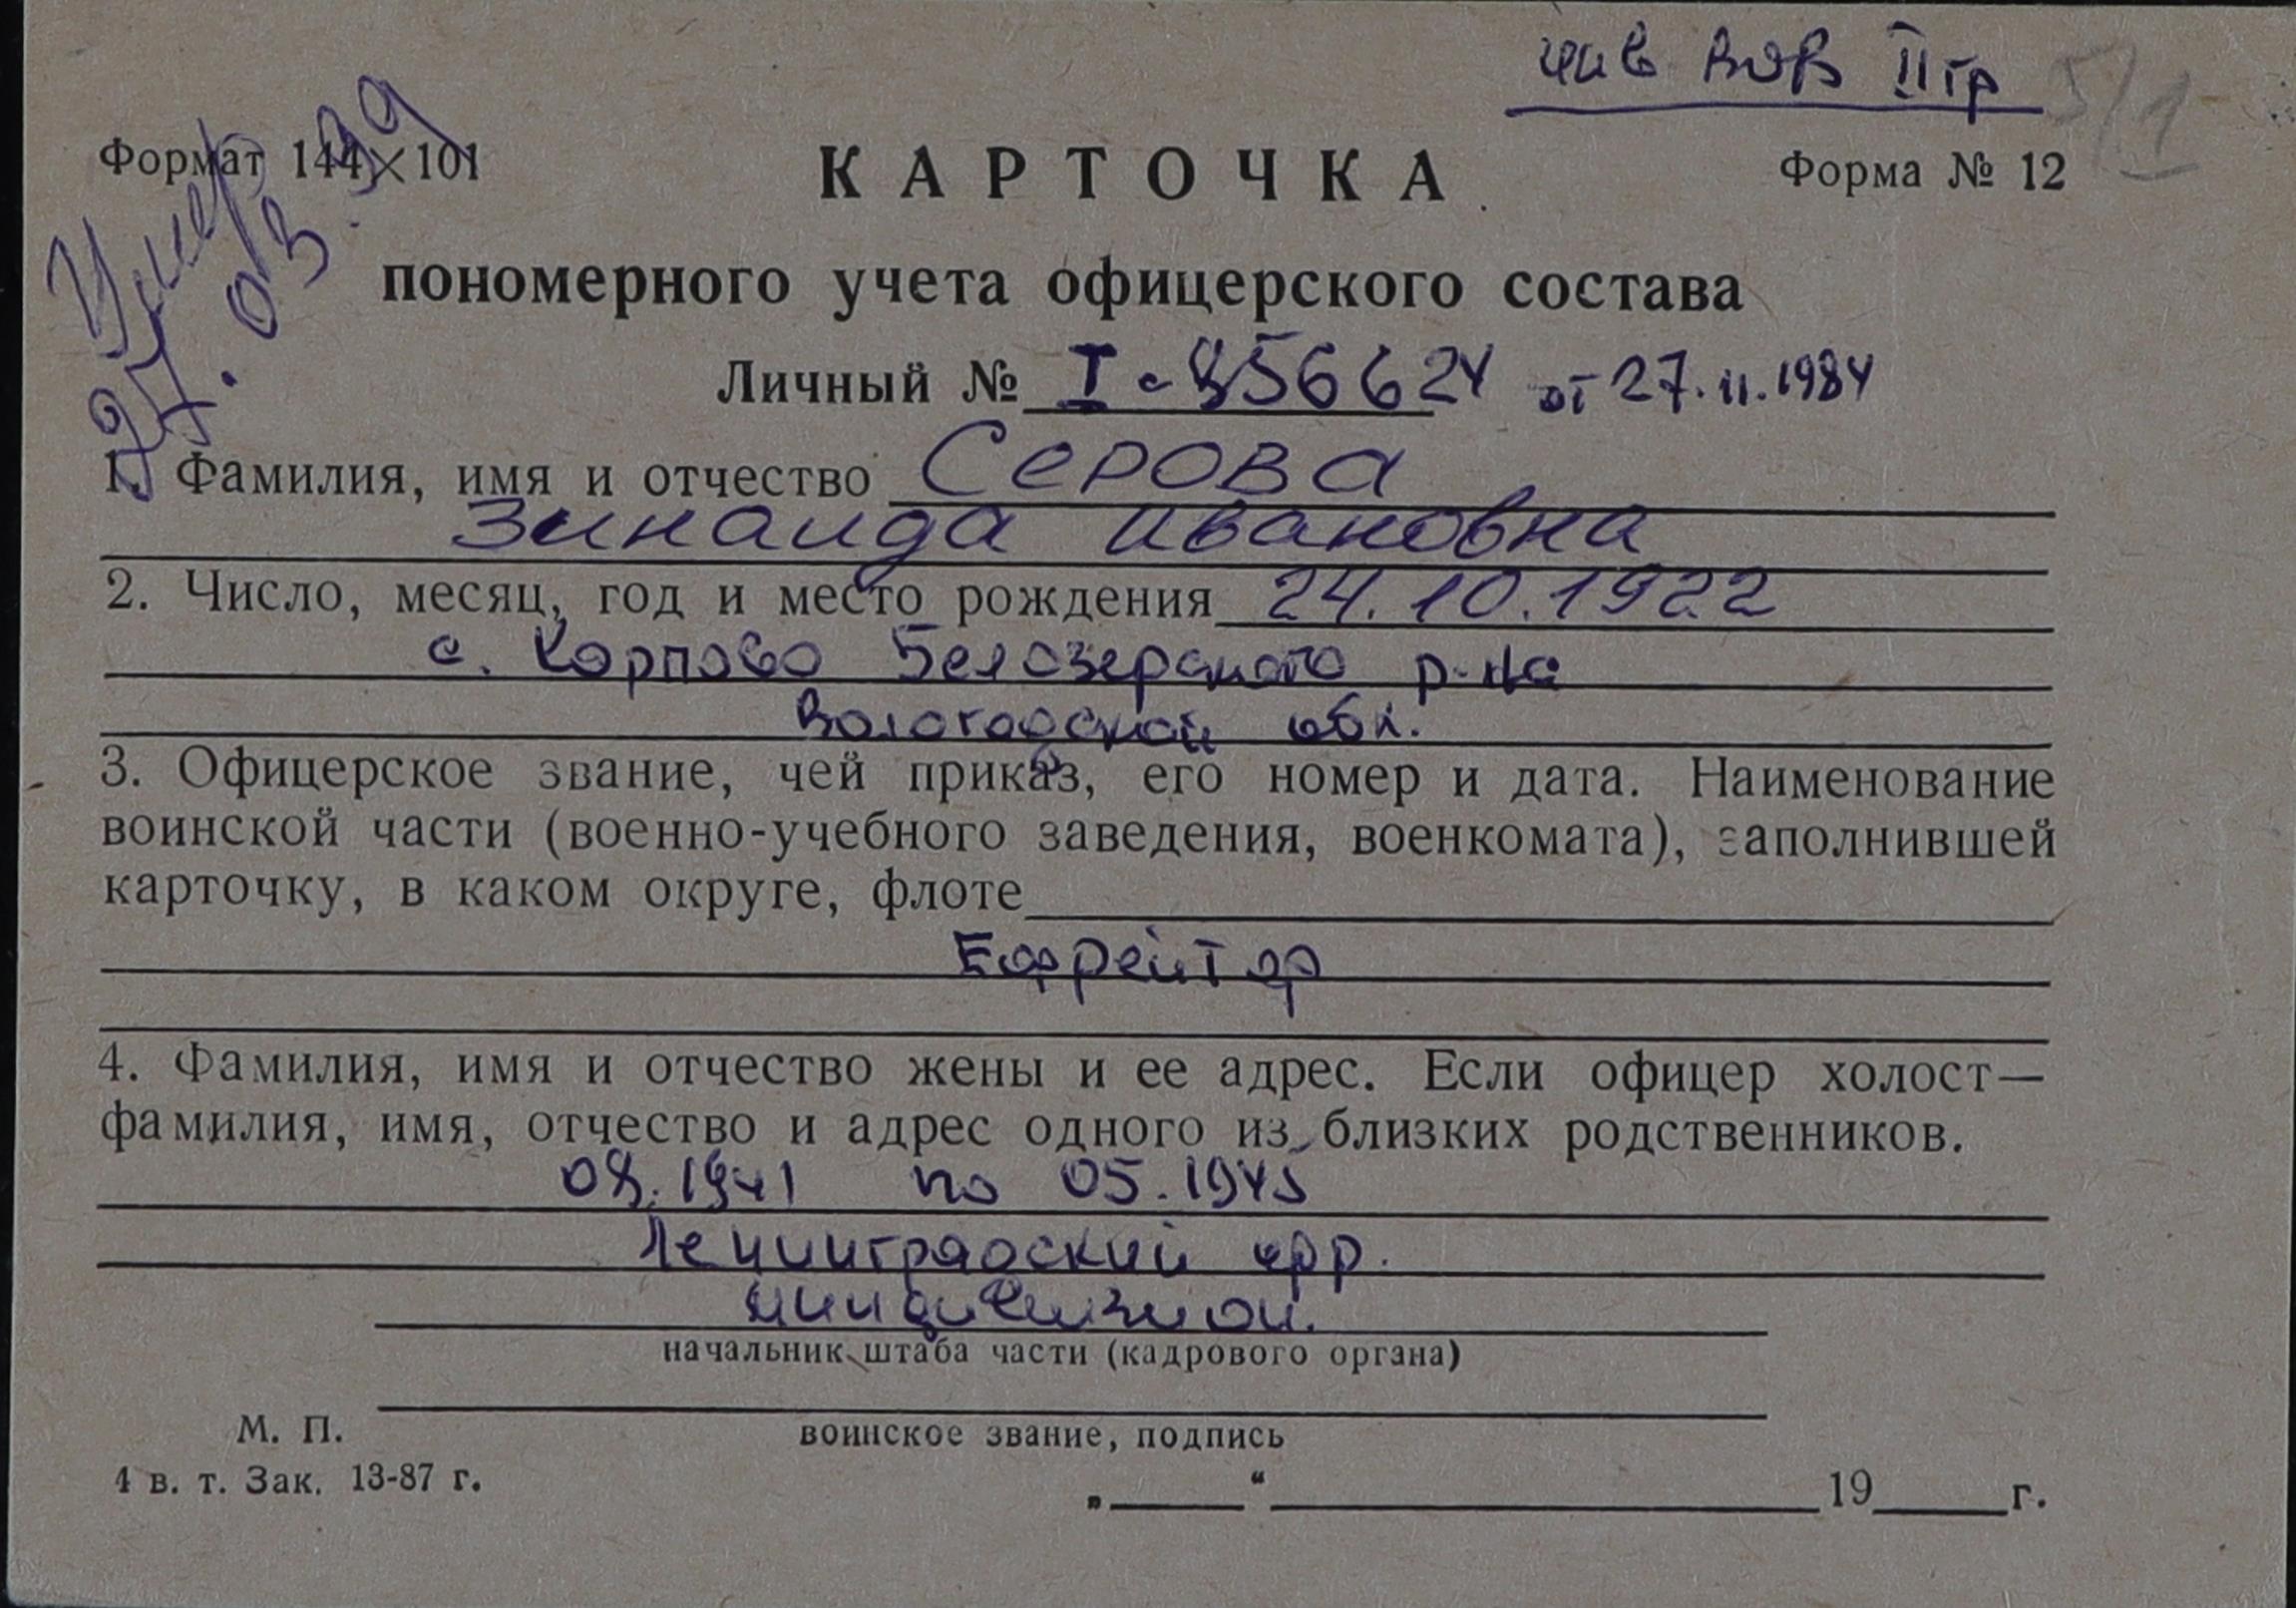 инв ВОВ II гр
Формат 144×101
КАРТОЧКА
Форма № 12
Умер
27.03.99
пономерного учета офицерского состава
Личный № I - 856624 от 27.11.1984
1. Фамилия, имя и отчество Серова
Зинаида Ивановна
2. Число, месяц, год и место рождения 24.10.1922
с. Карпово Белозерского р-на
Вологодской обл.
3. Офицерское звание, чей приказ, его номер и дата. Наименование
воинской части (военно-учебного заведения, военкомата), заполнившей
карточку, в каком округе, флоте
Ефрейтор
4. Фамилия, имя и отчество жены и ее адрес. Если офицер холост—
фамилия, имя, отчество и адрес одного из близких родственников.
08.1941 по 05.1945
Ленинградский фр.
начальник штаба части (кадрового органа)
М. П.
воинское звание, подпись
4 в. т. Зак. 13-87 г.
„ “ 19 г.